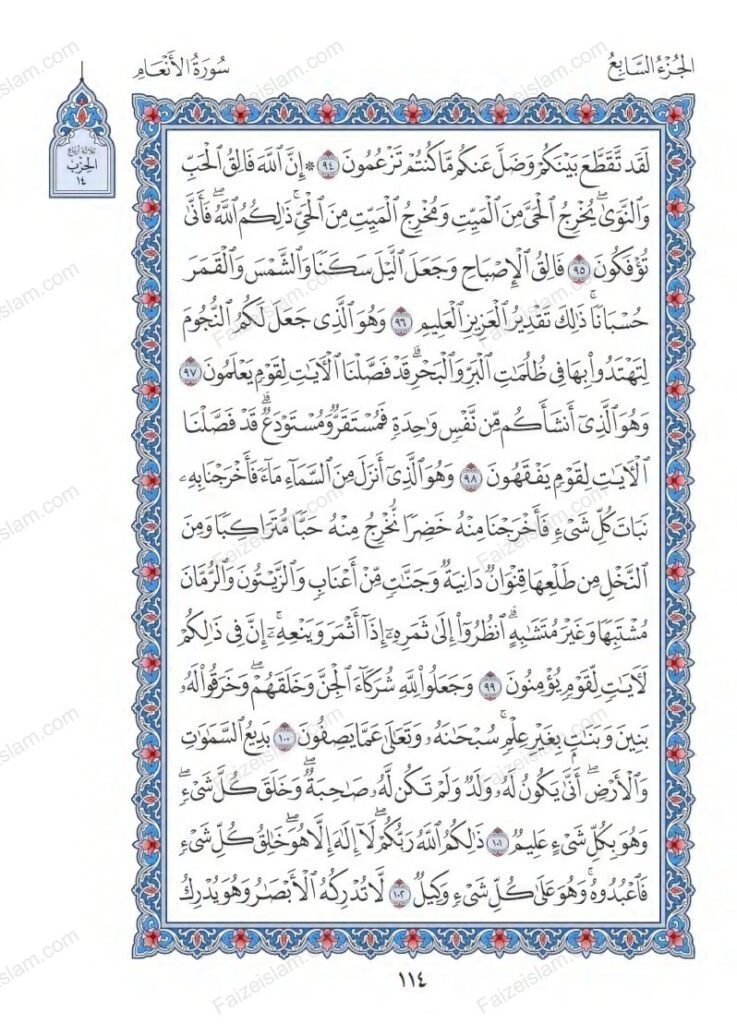 الجُزْءُ السَّابِعُ
سُورَةُ الأَنْعَام
ثلاثة أرباع
الحِزْب
١٤
لَقَد تَّقَطَّعَ بَيْنَكُمْ وَضَلَّ عَنكُم مَّا كُنتُمْ تَزْعُمُونَ ٩٤ * إِنَّ ٱللَّهَ فَالِقُ ٱلْحَبِّ
وَٱلنَّوَىٰۖ يُخْرِجُ ٱلْحَىَّ مِنَ ٱلْمَيِّتِ وَمُخْرِجُ ٱلْمَيِّتِ مِنَ ٱلْحَىِّۚ ذَٰلِكُمُ ٱللَّهُۖ فَأَنَّىٰ
تُؤْفَكُونَ ٩٥ فَالِقُ ٱلْإِصْبَاحِ وَجَعَلَ ٱلَّيْلَ سَكَنًا وَٱلشَّمْسَ وَٱلْقَمَرَ
حُسْبَانًاۚ ذَٰلِكَ تَقْدِيرُ ٱلْعَزِيزِ ٱلْعَلِيمِ ٩٦ وَهُوَ ٱلَّذِى جَعَلَ لَكُمُ ٱلنُّجُومَ
لِتَهْتَدُوا۟ بِهَا فِى ظُلُمَٰتِ ٱلْبَرِّ وَٱلْبَحْرِۗ قَدْ فَصَّلْنَا ٱلْـَٔايَٰتِ لِقَوْمٍ يَعْلَمُونَ ٩٧
وَهُوَ ٱلَّذِىٓ أَنشَأَكُم مِّن نَّفْسٍ وَٰحِدَةٍ فَمُسْتَقَرٌّ وَمُسْتَوْدَعٌۗ قَدْ فَصَّلْنَا
ٱلْـَٔايَٰتِ لِقَوْمٍ يَفْقَهُونَ ٩٨ وَهُوَ ٱلَّذِىٓ أَنزَلَ مِنَ ٱلسَّمَآءِ مَآءً فَأَخْرَجْنَا بِهِۦ
نَبَاتَ كُلِّ شَىْءٍ فَأَخْرَجْنَا مِنْهُ خَضِرًا نُّخْرِجُ مِنْهُ حَبًّا مُّتَرَاكِبًا وَمِنَ
ٱلنَّخْلِ مِن طَلْعِهَا قِنْوَانٌ دَانِيَةٌ وَجَنَّٰتٍ مِّنْ أَعْنَابٍ وَٱلزَّيْتُونَ وَٱلرُّمَّانَ
مُشْتَبِهًا وَغَيْرَ مُتَشَٰبِهٍۗ ٱنظُرُوٓا۟ إِلَىٰ ثَمَرِهِۦٓ إِذَآ أَثْمَرَ وَيَنْعِهِۦٓۚ إِنَّ فِى ذَٰلِكُمْ
لَـَٔايَٰتٍ لِّقَوْمٍ يُؤْمِنُونَ ٩٩ وَجَعَلُوا۟ لِلَّهِ شُرَكَآءَ ٱلْجِنَّ وَخَلَقَهُمْۖ وَخَرَقُوا۟ لَهُۥ
بَنِينَ وَبَنَٰتٍۭ بِغَيْرِ عِلْمٍۚ سُبْحَٰنَهُۥ وَتَعَٰلَىٰ عَمَّا يَصِفُونَ ١٠٠ بَدِيعُ ٱلسَّمَٰوَٰتِ
وَٱلْأَرْضِۖ أَنَّىٰ يَكُونُ لَهُۥ وَلَدٌ وَلَمْ تَكُن لَّهُۥ صَٰحِبَةٌۖ وَخَلَقَ كُلَّ شَىْءٍۖ
وَهُوَ بِكُلِّ شَىْءٍ عَلِيمٌ ١٠١ ذَٰلِكُمُ ٱللَّهُ رَبُّكُمْۖ لَآ إِلَٰهَ إِلَّا هُوَۖ خَٰلِقُ كُلِّ شَىْءٍ
فَٱعْبُدُوهُۚ وَهُوَ عَلَىٰ كُلِّ شَىْءٍ وَكِيلٌ ١٠٢ لَّا تُدْرِكُهُ ٱلْأَبْصَٰرُ وَهُوَ يُدْرِكُ
١١٤
Faizeislam.com